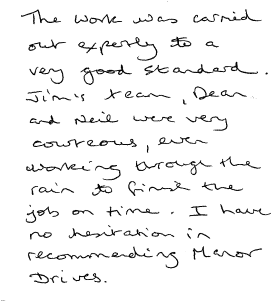 The work was carried
out expertly to a
very good standard.
Jim's team, Dean
and Neil were very
courteous, even
working through the
rain to finish the
job on time. I have
no hesitation in
recommending Manor
Drives.